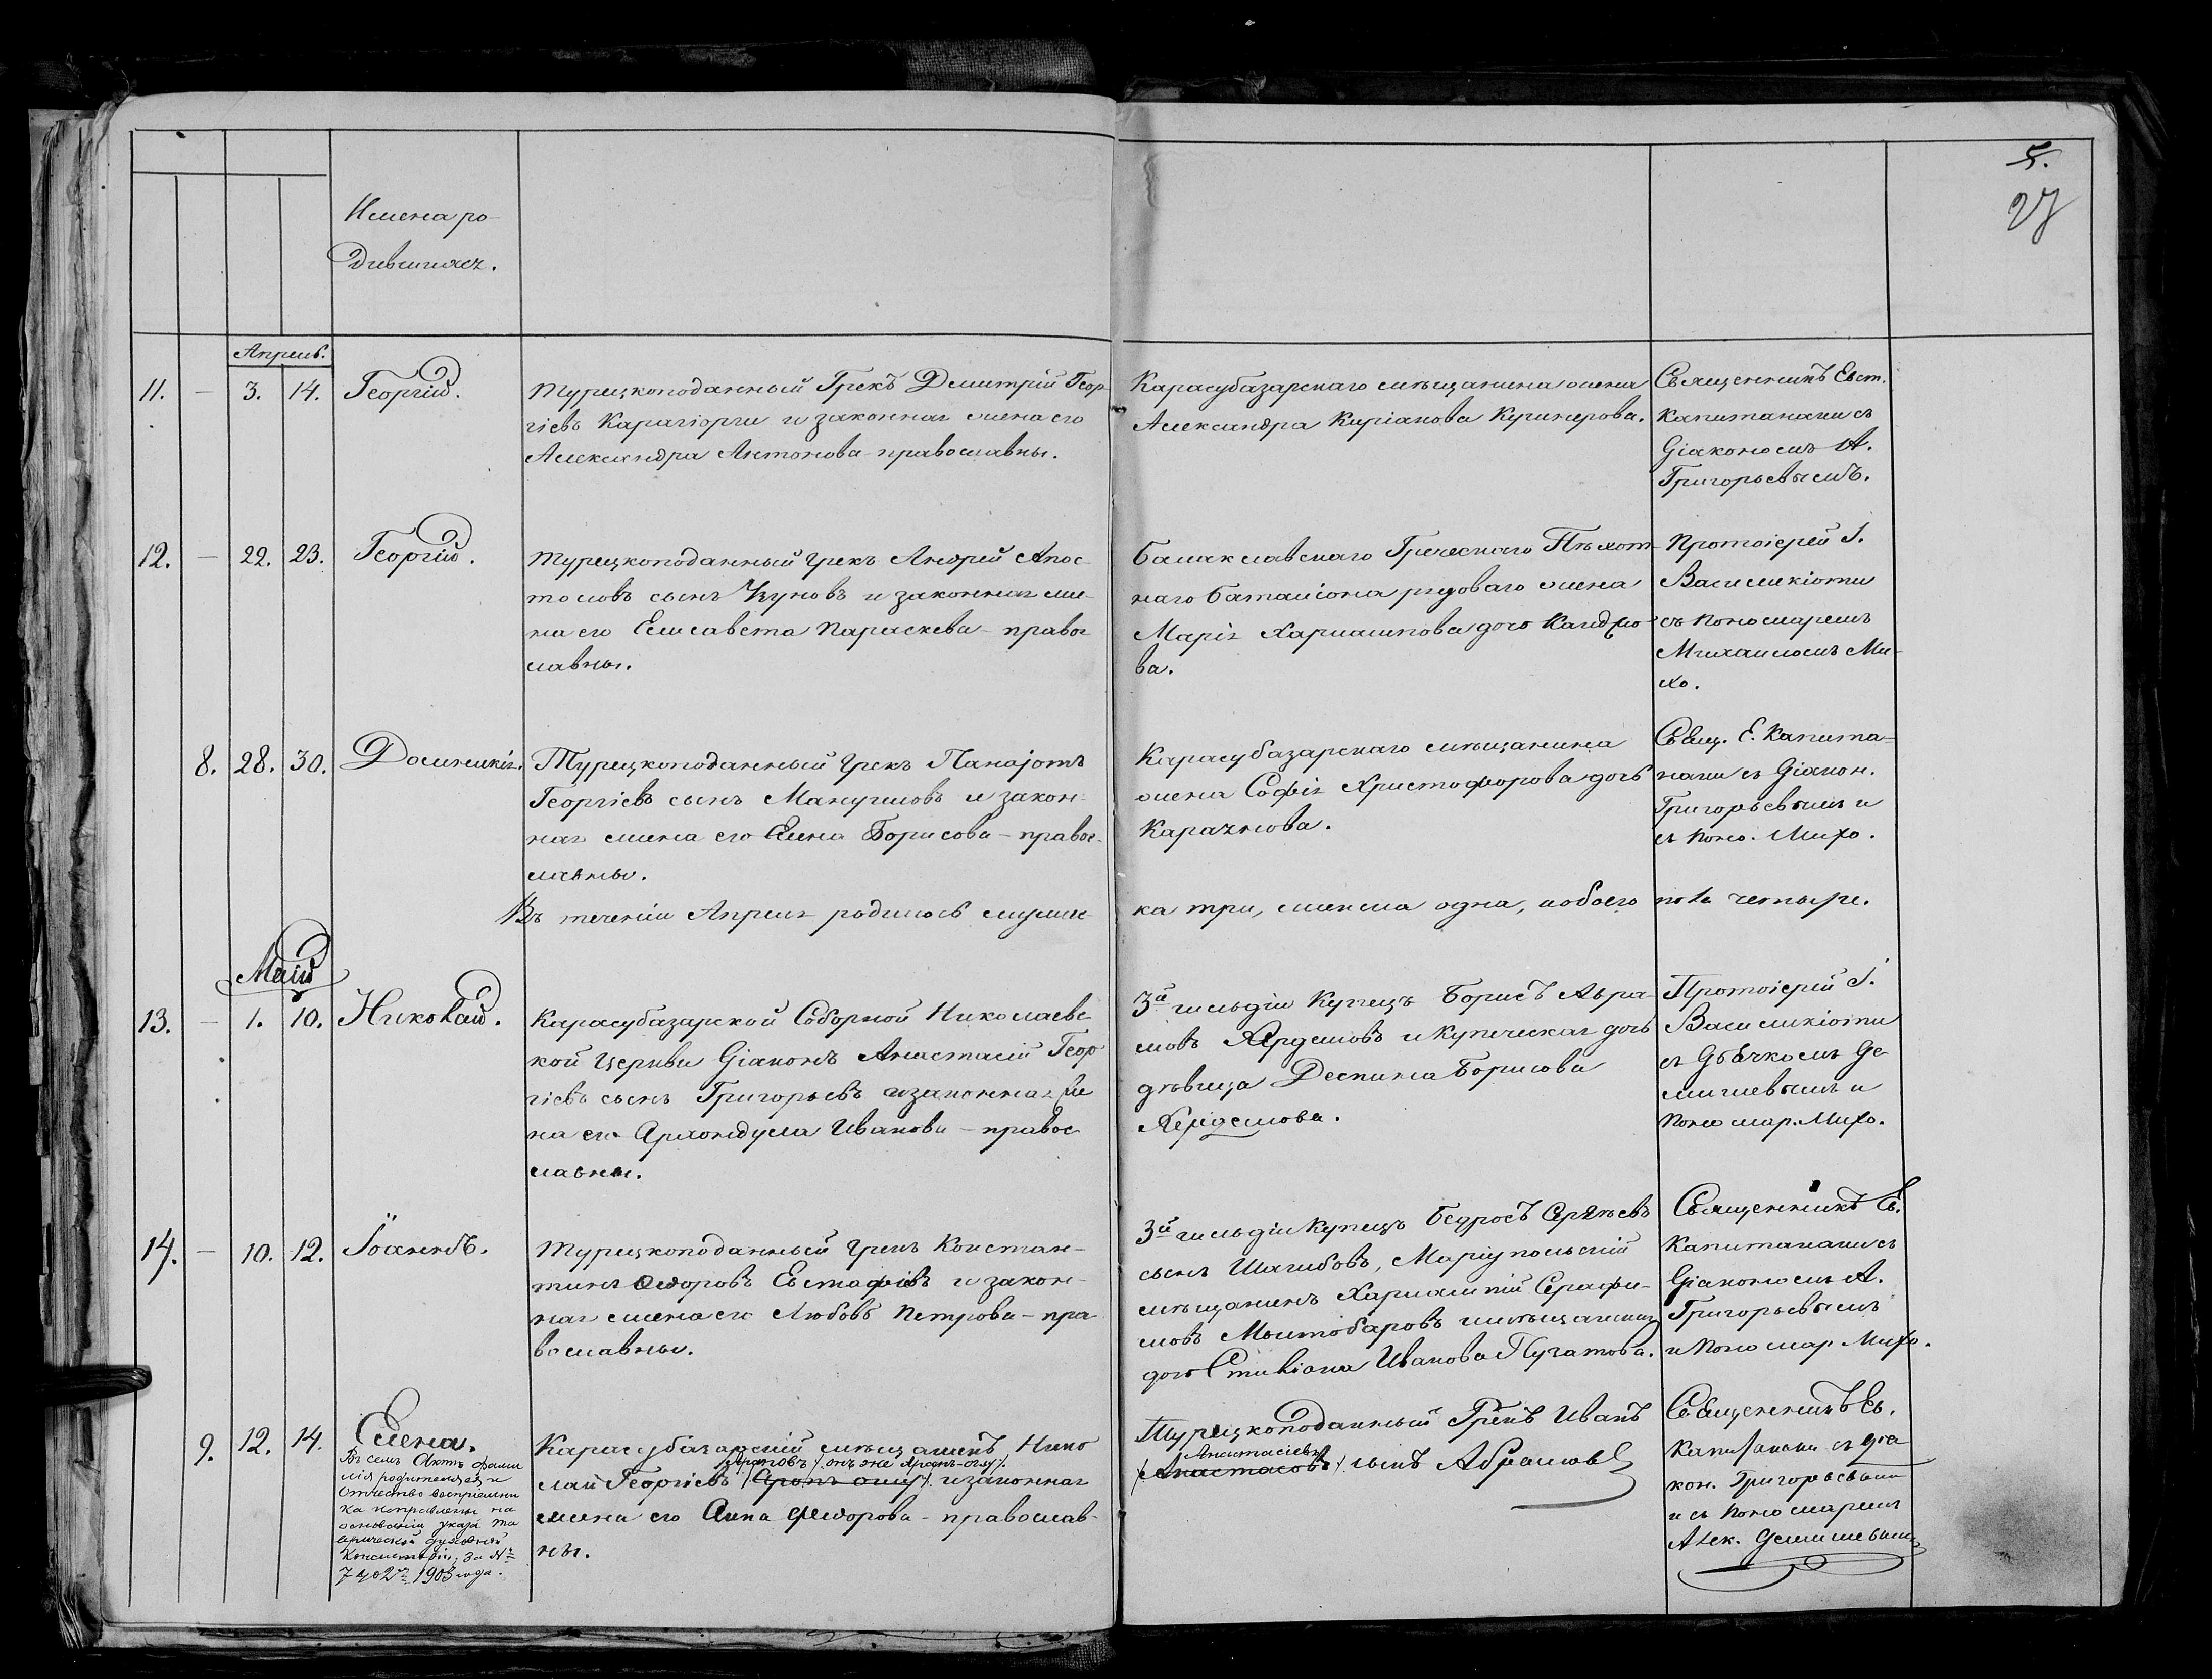 5.
27
Имена ро-
дившихся.
Апрель.
11. — 3. 14. Георгій.
Турецкоподанный Грекъ Димитрій Геор-
гіевъ Карагіорги и законная жена его
Александра Антонова - православны.
Карасубазарскаго мѣщанина жена
Александра Киріакова Кушнерова.
Священникъ Евст.
Капитанаки съ
Діакономъ А.
Григорьевымъ.
12. — 22. 23. Георгій.
Турецкоподанный грекъ Андрей Апос-
толовъ сынъ и законная же-
на его Елисавета Параскева - правос
лавны.
Балаклавскаго Греческаго Пѣхот-
наго баталіона рядоваго жена
Марія Харлампова дочь
ва.
Протоіерей І.
Василикіоти
съ Пономаремъ
Михаиломъ Ми-
хо.
8. 28. 30. Домникія.
Турецкоподанный грекъ Панаіотъ
Георгіевъ сынъ Мануиловъ и закон-
ная жена его Елена Борисова - правос-
лавны.
Карасубазарскаго мѣщанина
жена Софія Христофорова дочь
Свящ. Е. Капита-
наки съ Діакон.
Григорьевымъ и
съ Поно. Михо.
Въ теченіи Апреля родилось мужес-
ка три, женска одна, а обоего
пола четыре.
Маій
13. — 1. 10. Николай.
Карасубазарской Соборной Николаевс
кой Церкви Діаконъ Анастасій Геор
гіевъ сынъ Григорьевъ и законная же
на его Архондула Иванова - правос
лавны.
3й гильдіи Купецъ Борисъ Авра-
мовъ и купеческая дочь
дѣвица Деспина Борисова
Протоіерей І.
Василикіоти
съ Дьячкомъ Де-
мишевымъ и
Пономар. Михо.
14. — 10. 12. Іоаннъ.
Турецкоподанный грекъ Констан-
тинъ Ѳедоровъ Евстафіевъ и закон-
ная жена его Любовь Петрова - пра
вославны.
3й гильдіи Купецъ Бедросъ
сынъ Шагибовъ, Маріупольскій
мѣщанинъ Харлампій Серафи-
мовъ и мѣщанина
дочь Стиліана Иванова Пугатова.
Священникъ Е.
Капитанаки съ
Діакономъ А.
Григорьевымъ
и Пономар Михо.
9. 12. 14. Елена.
Въ семъ Актѣ фами
лія родителей и
отчество воспріемни
ка исправлены на
основаніи указа Та
врической духовной
Консисторіи, за №
1903 года.
Карасубазарскій мѣщанинъ Нико
онъ же Аронъ-оглу/.
лай Георгіевъ /Аронъ оглу/ и законная
жена его Анна Ѳедорова - православ-
ны.
Турецкоподанный Грекъ Иванъ
Анастасіевъ
/Анастасовъ/ сынъ Абрамовъ
Священникъ Ев.
Капитанаки съ діа
кон. Григорьевымъ
и съ Пономаремъ
Алек. Демишевымъ